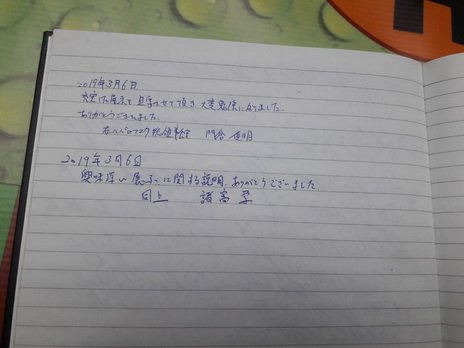 2019年3月6日
充実した展示を見学させて頂き、大変勉強になりました。
ありがとうございました。
在ハバロフスク総領事館
2019年3月6日
興味深い展示に関する説明、ありがとうございました
同上 諸富 学